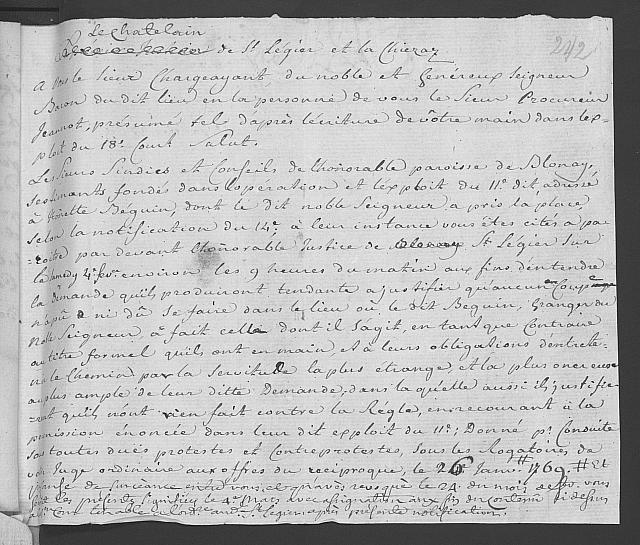 Le Chatelain
de St. Légier et la Chiezaz
242
A Vous le Sieur Chargeayant du noble et Généreux Seigneur
Baron du dit lieu en la personne de vous le Sieur Procureur
Jeannot, présumé tel d'après lécriture de votre main dans lex-
ploit du 18e. Court Salut.
Les Sieurs Sindics et Conseils de Lhonorable paroisse de Blonay,
sestimants fondés dans lopération et lexploit du 11e. dit adressé
à Béguin, dont le dit noble Seigneur a pris la place
selon la notification du 14e. à leur instance vous êtes cités a pa-
roitre par devant Lhonorable Justice de St. Légier Sur
le Samedy 4e. fevr. environ les 9 heures du matin aux fins d'entendre
la demande quils produiront tendante a justifier qu'aucun
n'a pû ni dû se faire dans le lieu où le dit Béguin, Granger du
Noble Seigneur à fait celle dont il Sagit, en tant que Contraire
au titre formel quils ont en main, et à leurs obligations dentrete-
nir le Chemin par la Servitude la plus étrange, et la plus onereuse
au plus ample de leur ditte Demande, dans la quelle aussi ils justifie-
ront quils nont rien fait contre la Régle, en recourant à la
permission énoncée dans leur dit exploit du 11e; Donné pr. Conduite
sous toutes dues protestes et Contreprotestes, sous les Rogatoires de
vôtre Juge ordinaire aux offres du réciproque, le 26 Janvr. 1769. # Et
ensuite de Surceance entre vous, et gravés revoquée le 24. du mois de fevr. vous
les présentes le 4e. Mars avec assignation aux fins du Contenu ci dessus
St. Légier, après présente notification.